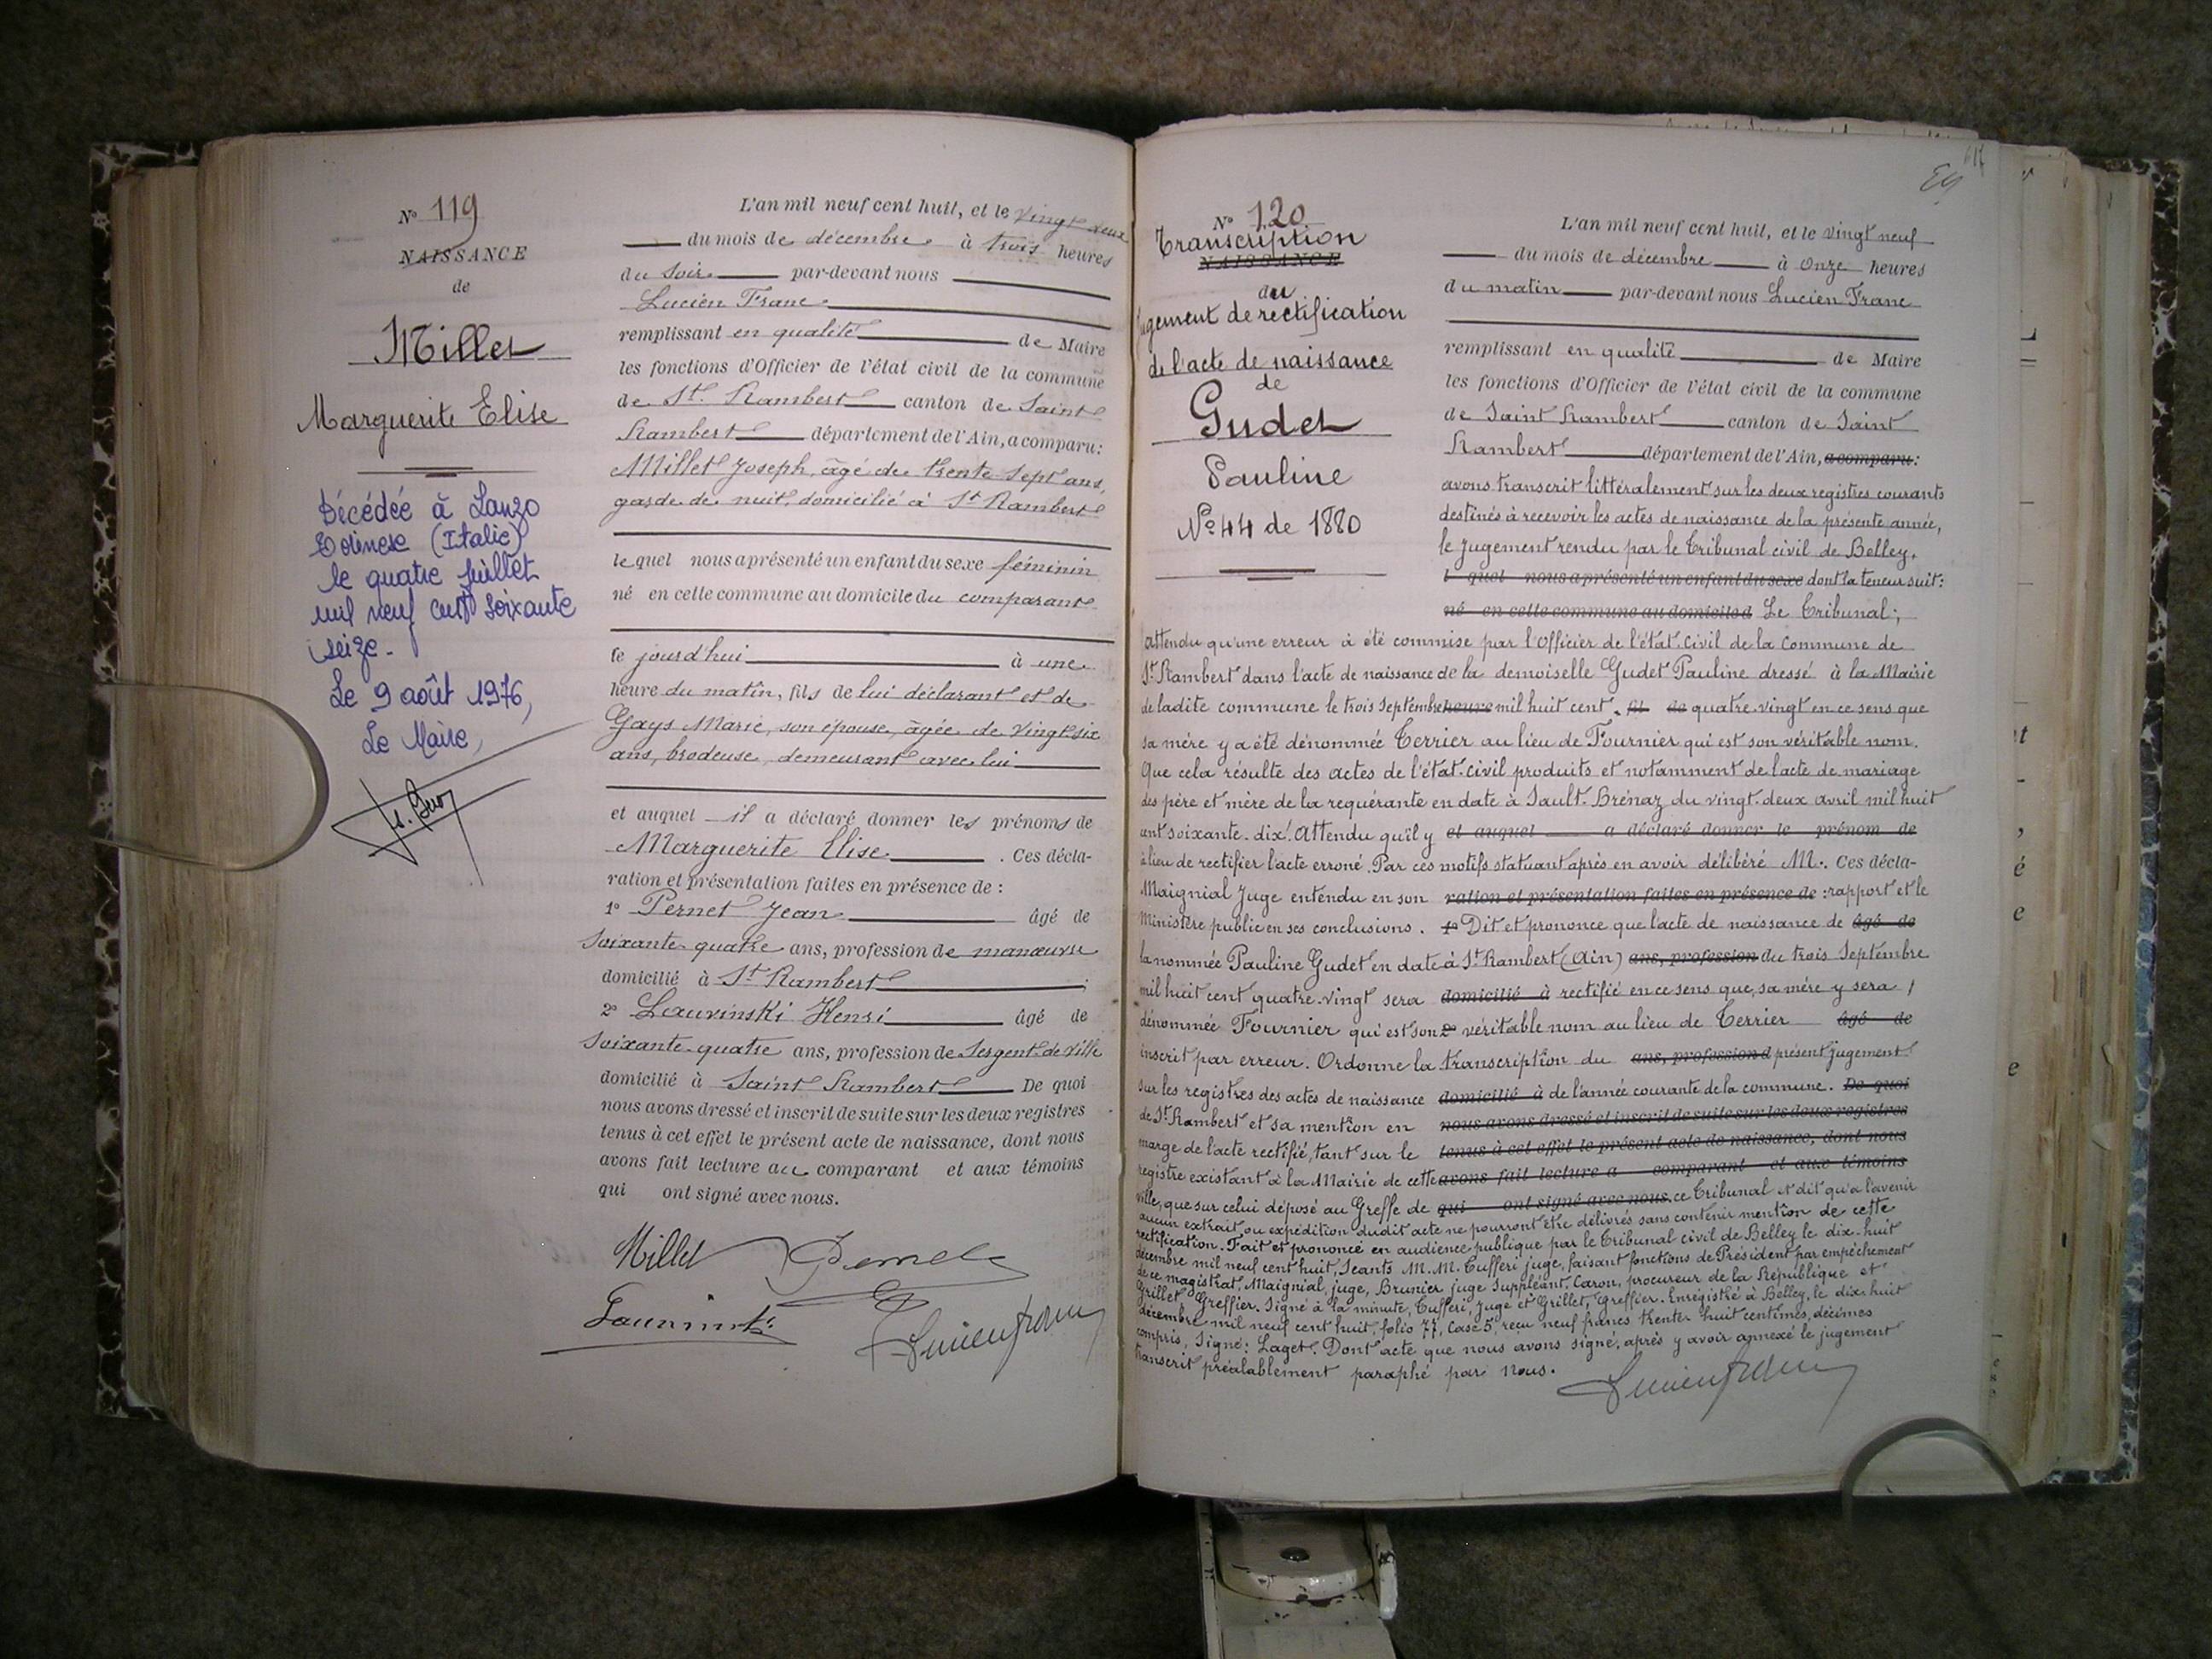 N° 119
NAISSANCE
de
Millet
Marguerite Elise
Décédée à Lanzo
Torinese (Italie)
le quatre juillet
mil neuf cent soixante
seize.
Le 9 août 1976,
Le Maire,
L'an mil neuf cent huit, et le vingt deux
du mois de décembre à trois heures
du soir par-devant nous
Lucien Franc
remplissant en qualité de Maire
les fonctions d'Officier de l'état civil de la commune
de St. Rambert canton de Saint
Rambert département de l'Ain, a comparu:
Millet Joseph, âgé de trente sept ans,
garde de nuit, domicilié à St Rambert
lequel nous a présenté un enfant du sexe féminin
né en cette commune au domicile du comparant
le jourd'hui à une
heure du matin, fils de lui déclarant et de
Gays Marie, son épouse, âgée de vingt-six
ans, brodeuse, demeurant avec lui
et auquel il a déclaré donner les prénoms de
Marguerite Elise. Ces décla-
ration et présentation faites en présence de :
1° Pernet Jean âgé de
soixante-quatre ans, profession de manœuvre
domicilié à St Rambert ;
2° Lauvinski Henri âgé de
soixante-quatre ans, profession de Sergent de ville
domicilié à Saint Rambert De quoi
nous avons dressé et inscrit de suite sur les deux registres
tenus à cet effet le présent acte de naissance, dont nous
avons fait lecture au comparant et aux témoins
qui ont signé avec nous.
Millet Pernet
Lauvinski Lucien Franc
N° 120
Transcription
NAISSANCE
du
jugement de rectification
de l'acte de naissance
de
Gudet
Pauline
N° 44 de 1880
L'an mil neuf cent huit, et le vingt neuf
du mois de décembre à onze heures
du matin par-devant nous Lucien Franc
remplissant en qualité de Maire
les fonctions d'Officier de l'état civil de la commune
de Saint Rambert canton de Saint
Rambert département de l'Ain, a comparu:
avons transcrit littéralement sur les deux registres courants
destinés à recevoir les actes de naissance de la présente année,
le Jugement rendu par le Tribunal civil de Belley,
l quel nous a présenté un enfant du sexe dont la teneur suit:
né en cette commune au domicile d Le Tribunal;
Attendu qu'une erreur à été commise par l'Officier de l'état-Civil de la Commune de
St. Rambert dans l'acte de naissance de la demoiselle Gudet Pauline dressé à la Mairie
de ladite commune le trois Septembre heure mil huit cent. fil de quatre-vingt en ce sens que
sa mère y a été dénommée Terrier au lieu de Fournier qui est son véritable nom.
Que cela résulte des actes de l'état-civil produits et notamment de l'acte de mariage
des père et mère de la requérante en date à Sault-Brénaz du vingt-deux avril mil huit
cent soixante-dix. Attendu qu'il y et auquel a déclaré donner le prénom de
à lieu de rectifier l'acte erroné. Par ces motifs statuant après en avoir délibéré M. Ces décla-
Maignial Juge entendu en son ration et présentation faites en présence de : rapport et le
Ministère public en ses conclusions. 1° Dit et prononce que l'acte de naissance de âgé de
la nommée Pauline Gudet en date à St. Rambert (Ain) ans, profession du trois Septembre
mil huit cent quatre-vingt sera domicilié à rectifié en ce sens que, sa mère y sera /
dénommée Fournier qui est son 2° véritable nom au lieu de Terrier âgé de
inscrit par erreur. Ordonne la transcription du ans, profession d présent jugement
sur les registres des actes de naissance domicilié à de l'année courante de la commune. De quoi
de St. Rambert et sa mention en nous avons dressé et inscrit de suite sur les deux registres
marge de l'acte rectifié, tant sur le tenus à cet effet le présent acte de naissance, dont nous
registre existant à la Mairie de cette avons fait lecture a comparant et aux témoins
ville, que sur celui déposé au Greffe de qui ont signé avec nous. ce Tribunal et dit qu'à l'avenir
aucun extrait ou expédition dudit acte ne pourront être délivrés sans contenir mention de cette
rectification. Fait et prononcé en audience publique par le Tribunal civil de Belley le dix-huit
décembre mil neuf cent huit, Séants M. M. Tufferi juge, faisant fonctions de Président par empêchement
de ce magistrat, Maignial, juge, Brunier juge Suppléant, Caron, procureur de la République et
Grillet Greffier. Signé à la minute, Tufferi, Juge et Grillet, Greffier. Enregistré à Belley, le dix-huit
décembre mil neuf cent huit, folio 77, Case 5, reçu neuf francs trente huit centimes, décimes
compris, Signé: Laget. Dont acte que nous avons signé, après y avoir annexé le jugement
transcrit préalablement paraphé par nous.
Lucien Franc